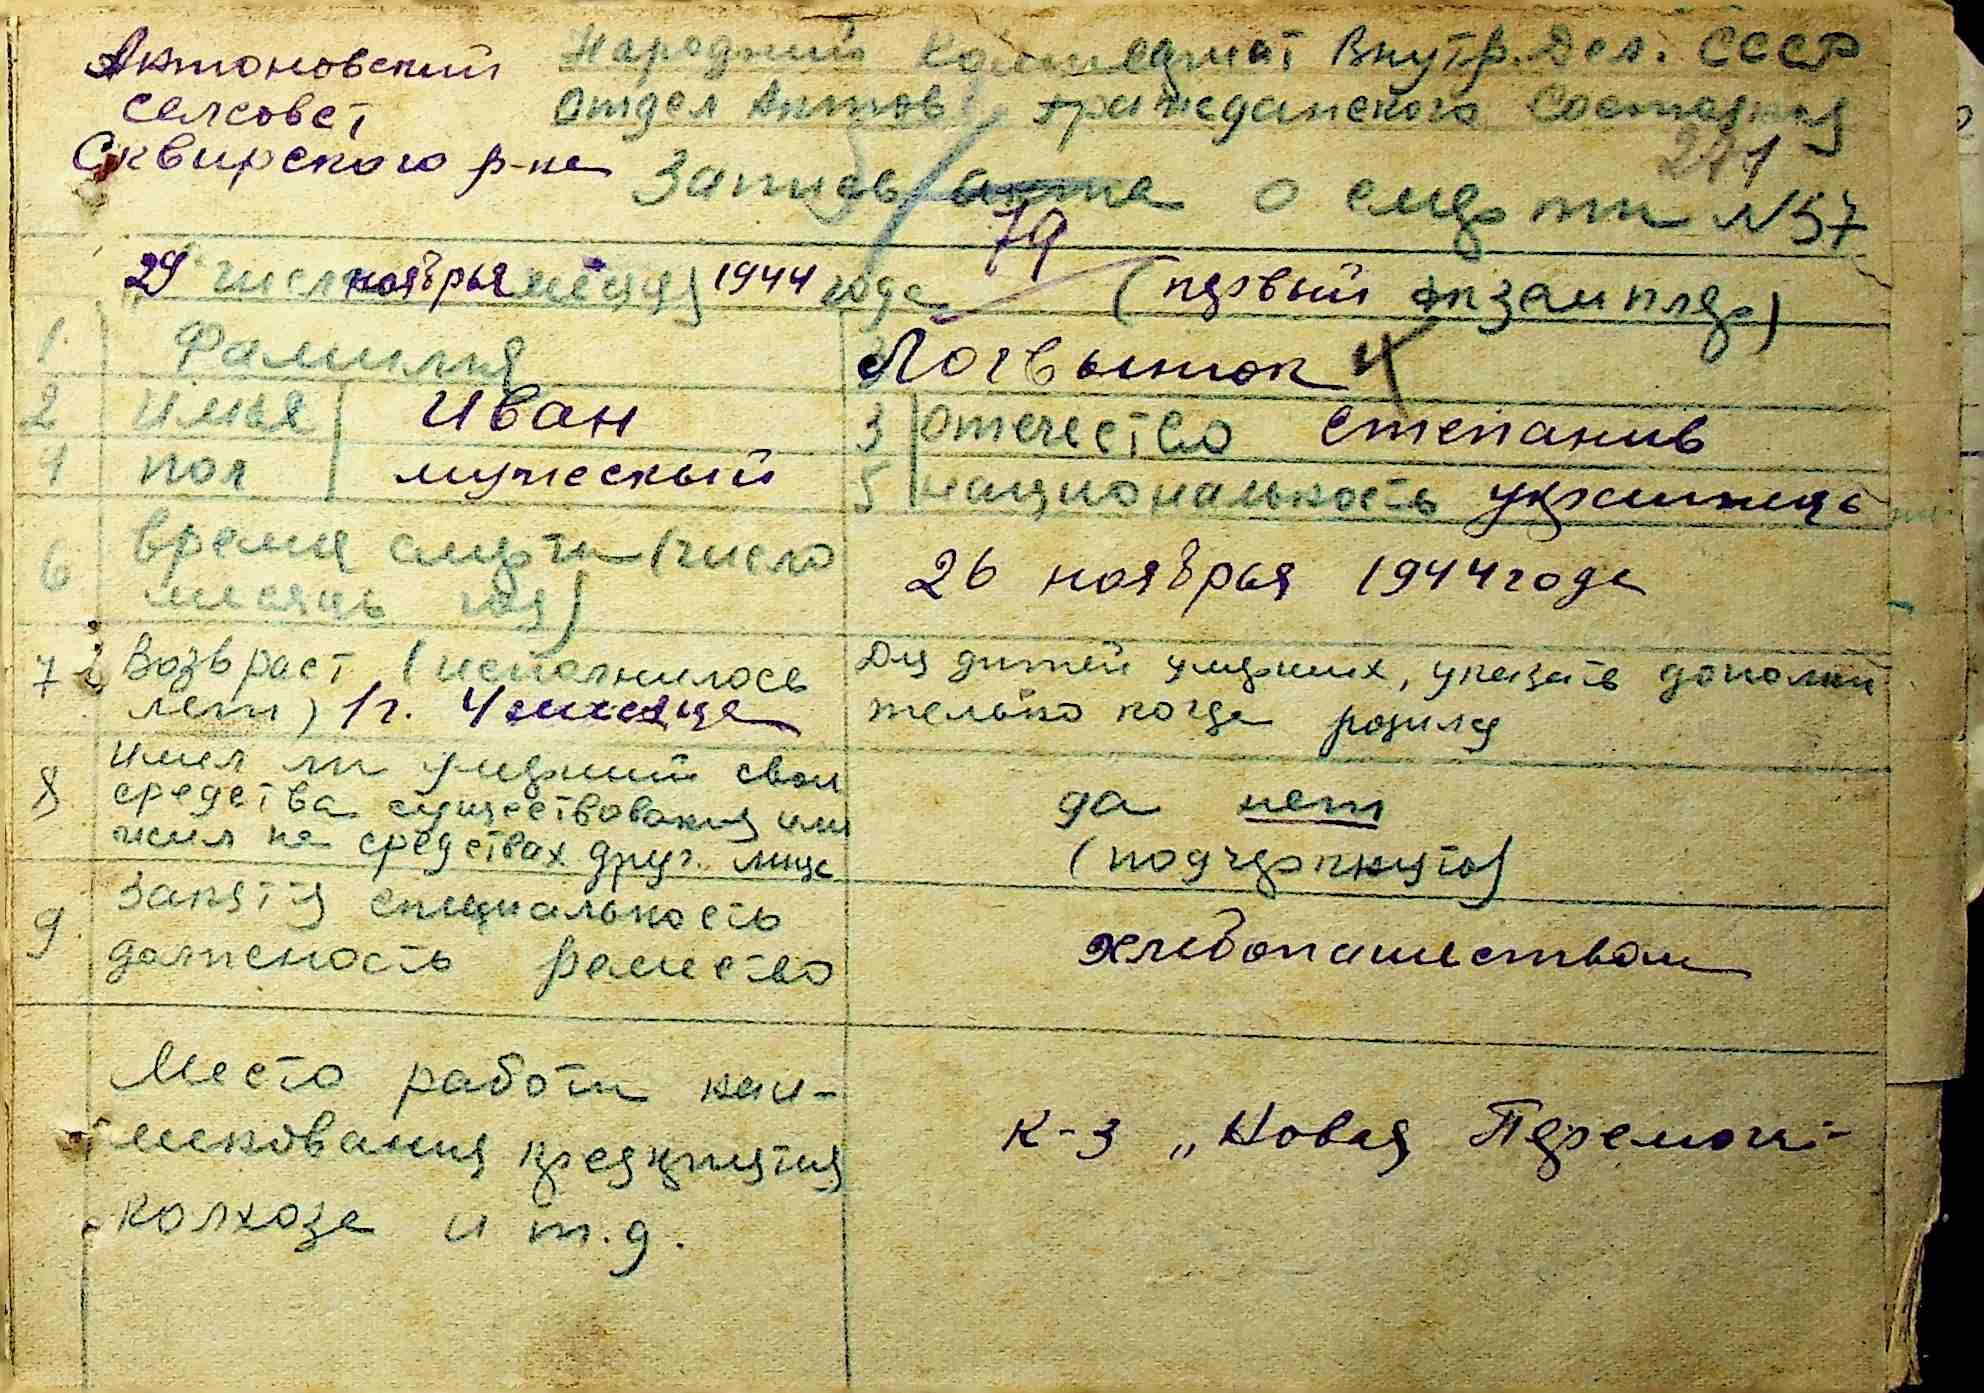 Антоновский
селсовет
Сквирского р-на
Народний Комисариат Внутр. Дел. СССР
Отдел Актов Гражданского Состояния
241
Запись акта о смерти N 57
79
29 числа ноября месяца 1944 года (первый экземпляр)
1. Фамилия Логвынюк
2 Имья Иван 3 Отечество Степанив
4 пол мужеский 5 Национальность украинець
6 время смерти (число
месяць год) 26 ноября 1944 года
7 Возвраст (исполнилось
лет) 1 г. 4 месяца
Для дитей умерших, указать дополни
тельно когда родился
8 Имел ли умерший свои
средства существования или
жил на средствах друг. лице
да нет
(подчеркнуть)
9. Занятия специальность
должность ремество
хлебопашеством
Место работи наи-
менования предприятия
колхоза и т.д.
к-з „Новая Перемога"